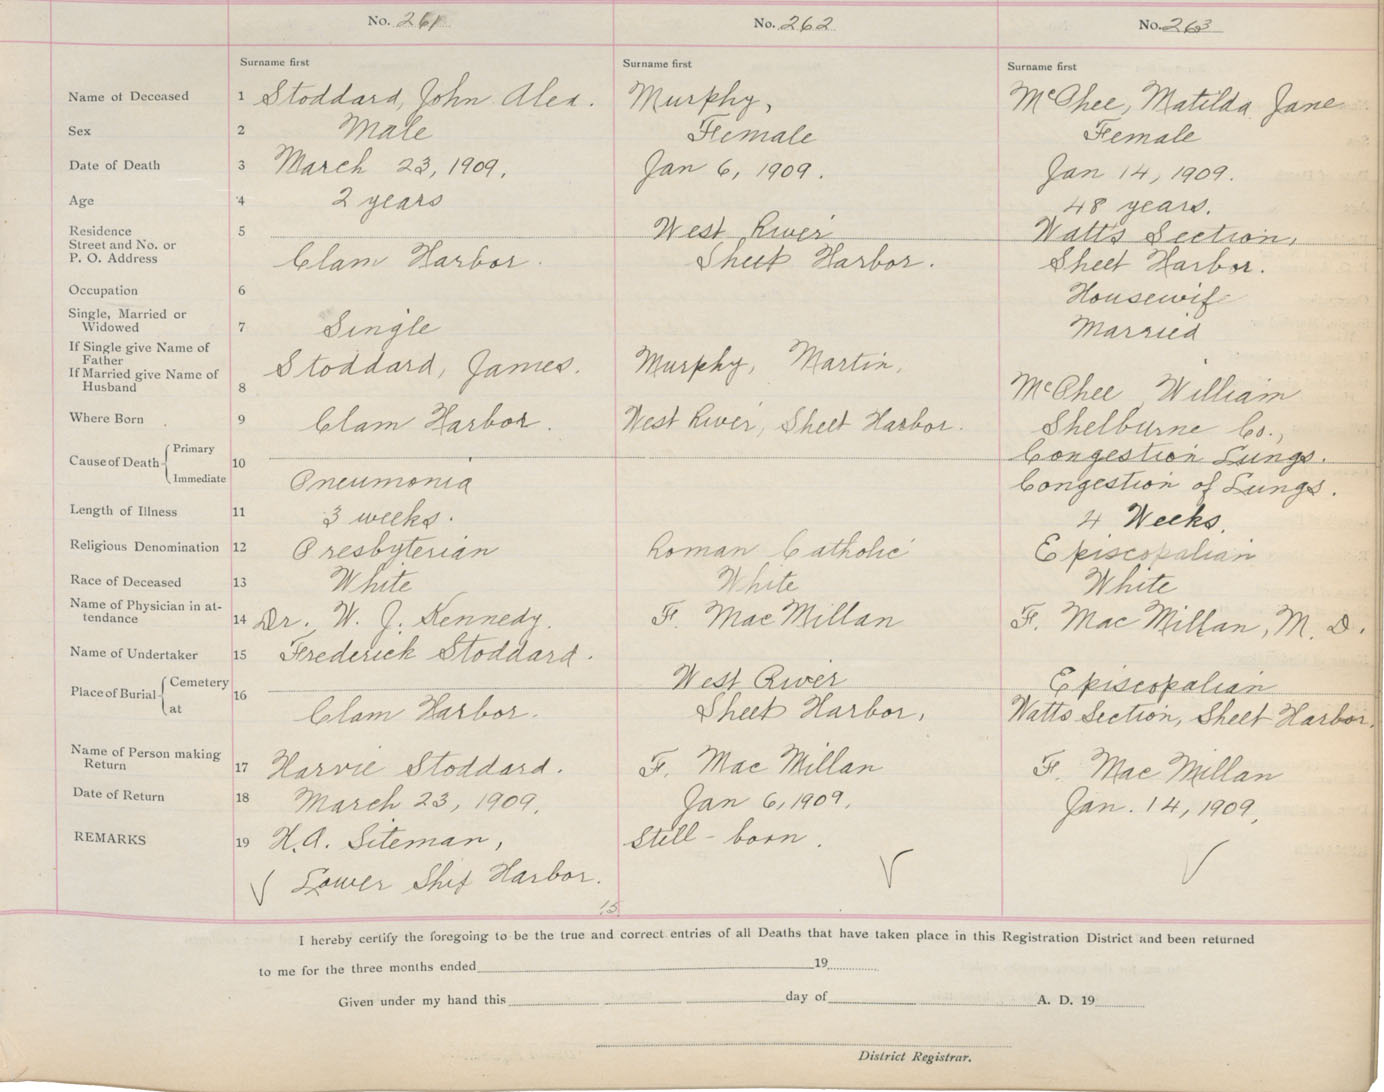 No. 261 No. 262 No. 263
Surname first Surname first Surname first
Name of Deceased 1 Stoddard, John Alex. Murphy, McPhee, Matilda Jane
Sex 2 Male Female Female
Date of Death 3 March 23, 1909. Jan 6, 1909. Jan 14, 1909.
Age 4 2 years 48 years.
Residence 5 West River Watts Section,
Street and No. or
P. O. Address Clam Harbor. Sheet Harbor. Sheet Harbor.
Occupation 6 Housewife
Single, Married or
Widowed 7 Single Married
If Single give Name of
Father Stoddard, James. Murphy, Martin.
If Married give Name of
Husband 8 McPhee William
Where Born 9 Clam Harbor. West River, Sheet Harbor. Shelburne Co.,
Cause of Death Primary 10 Congestion Lungs.
Immediate Pneumonia Congestion of Lungs.
Length of Illness 11 3 weeks. 4 Weeks.
Religious Denomination 12 Presbyterian Roman Catholic Episcopalian
Race of Deceased 13 White White White
Name of Physician in at-
tendance 14 Dr. W. J. Kennedy. F. MacMillan F. MacMillan, M. D.
Name of Undertaker 15 Frederick Stoddard.
Place of Burial Cemetery 16 West River Episcopalian
at Clam Harbor. Sheet Harbor, Watts Section, Sheet Harbor.
Name of Person making
Return 17 Harvie Stoddard. F. MacMillan F. MacMillan
Date of Return 18 March 23, 1909. Jan 6, 1909. Jan. 14, 1909.
REMARKS 19 H.A. Siteman, Still-born.
Lower Ship Harbor.
15
I hereby certify the foregoing to be the true and correct entries of all Deaths that have taken place in this Registration District and been returned
to me for the three months ended 19
Given under my hand this day of A. D. 19
District Registrar.